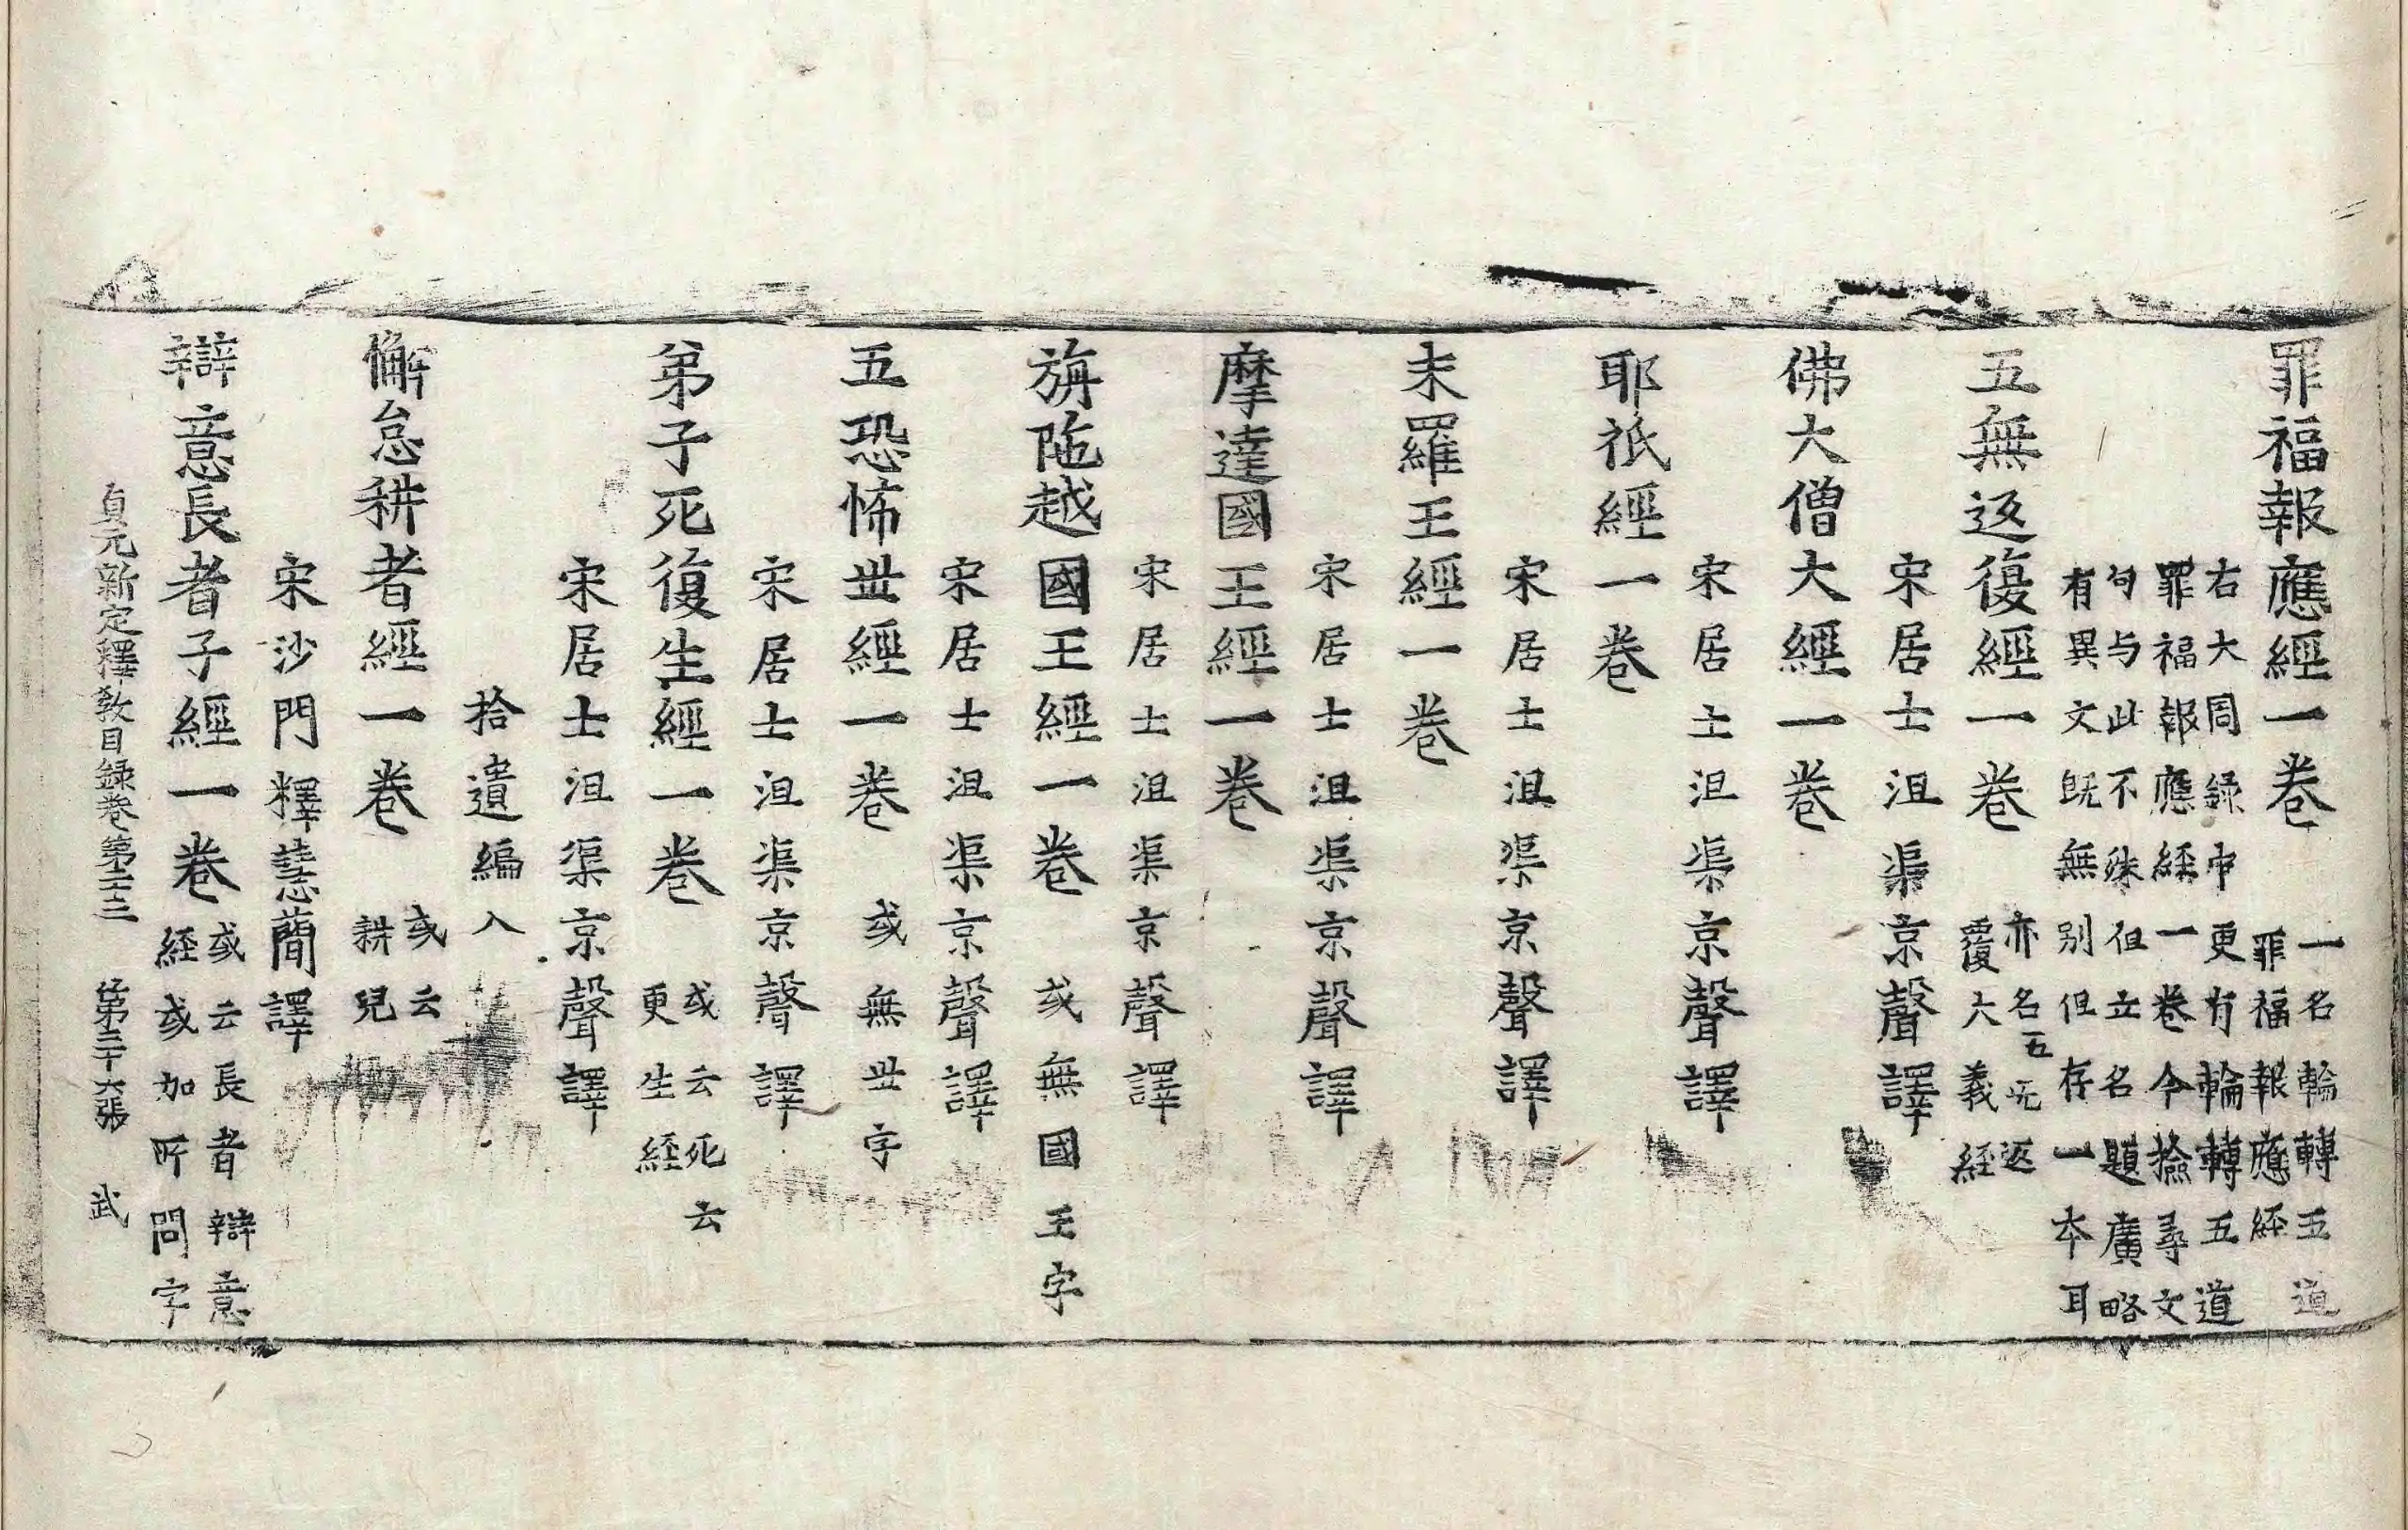 罪福報應經一卷 一名輪轉五道
罪福報應經
右大周録中更有輪轉五道
罪福報應経一卷今撿尋文
句与此不殊但立名題廣略
有異文旣無別但存一本耳
五無返復經一卷 亦名五无返
覆大義経
宋居士沮渠京聲譯
佛大僧大經一卷
宋居士沮渠京聲譯
耶祇經一卷
宋居士沮渠京聲譯
末羅王經一卷
宋居士沮渠京聲譯
摩達國王經一卷
宋居士沮渠京聲譯
旃陁越國王經一卷 或無國王字
宋居士沮渠京聲譯
五恐怖丗經一卷 或無丗字
宋居士沮渠京聲譯
弟子死復生經一卷 或云死云
更生経
宋居士沮渠京聲譯
拾遺編入
懈怠耕者經一卷 或云
耕兒
宋沙門釋慧蕳譯
辯意長者子經一卷 或云長者辯意
経或加所問字
貞元新定釋教目録卷第二十三 第三十六張 武